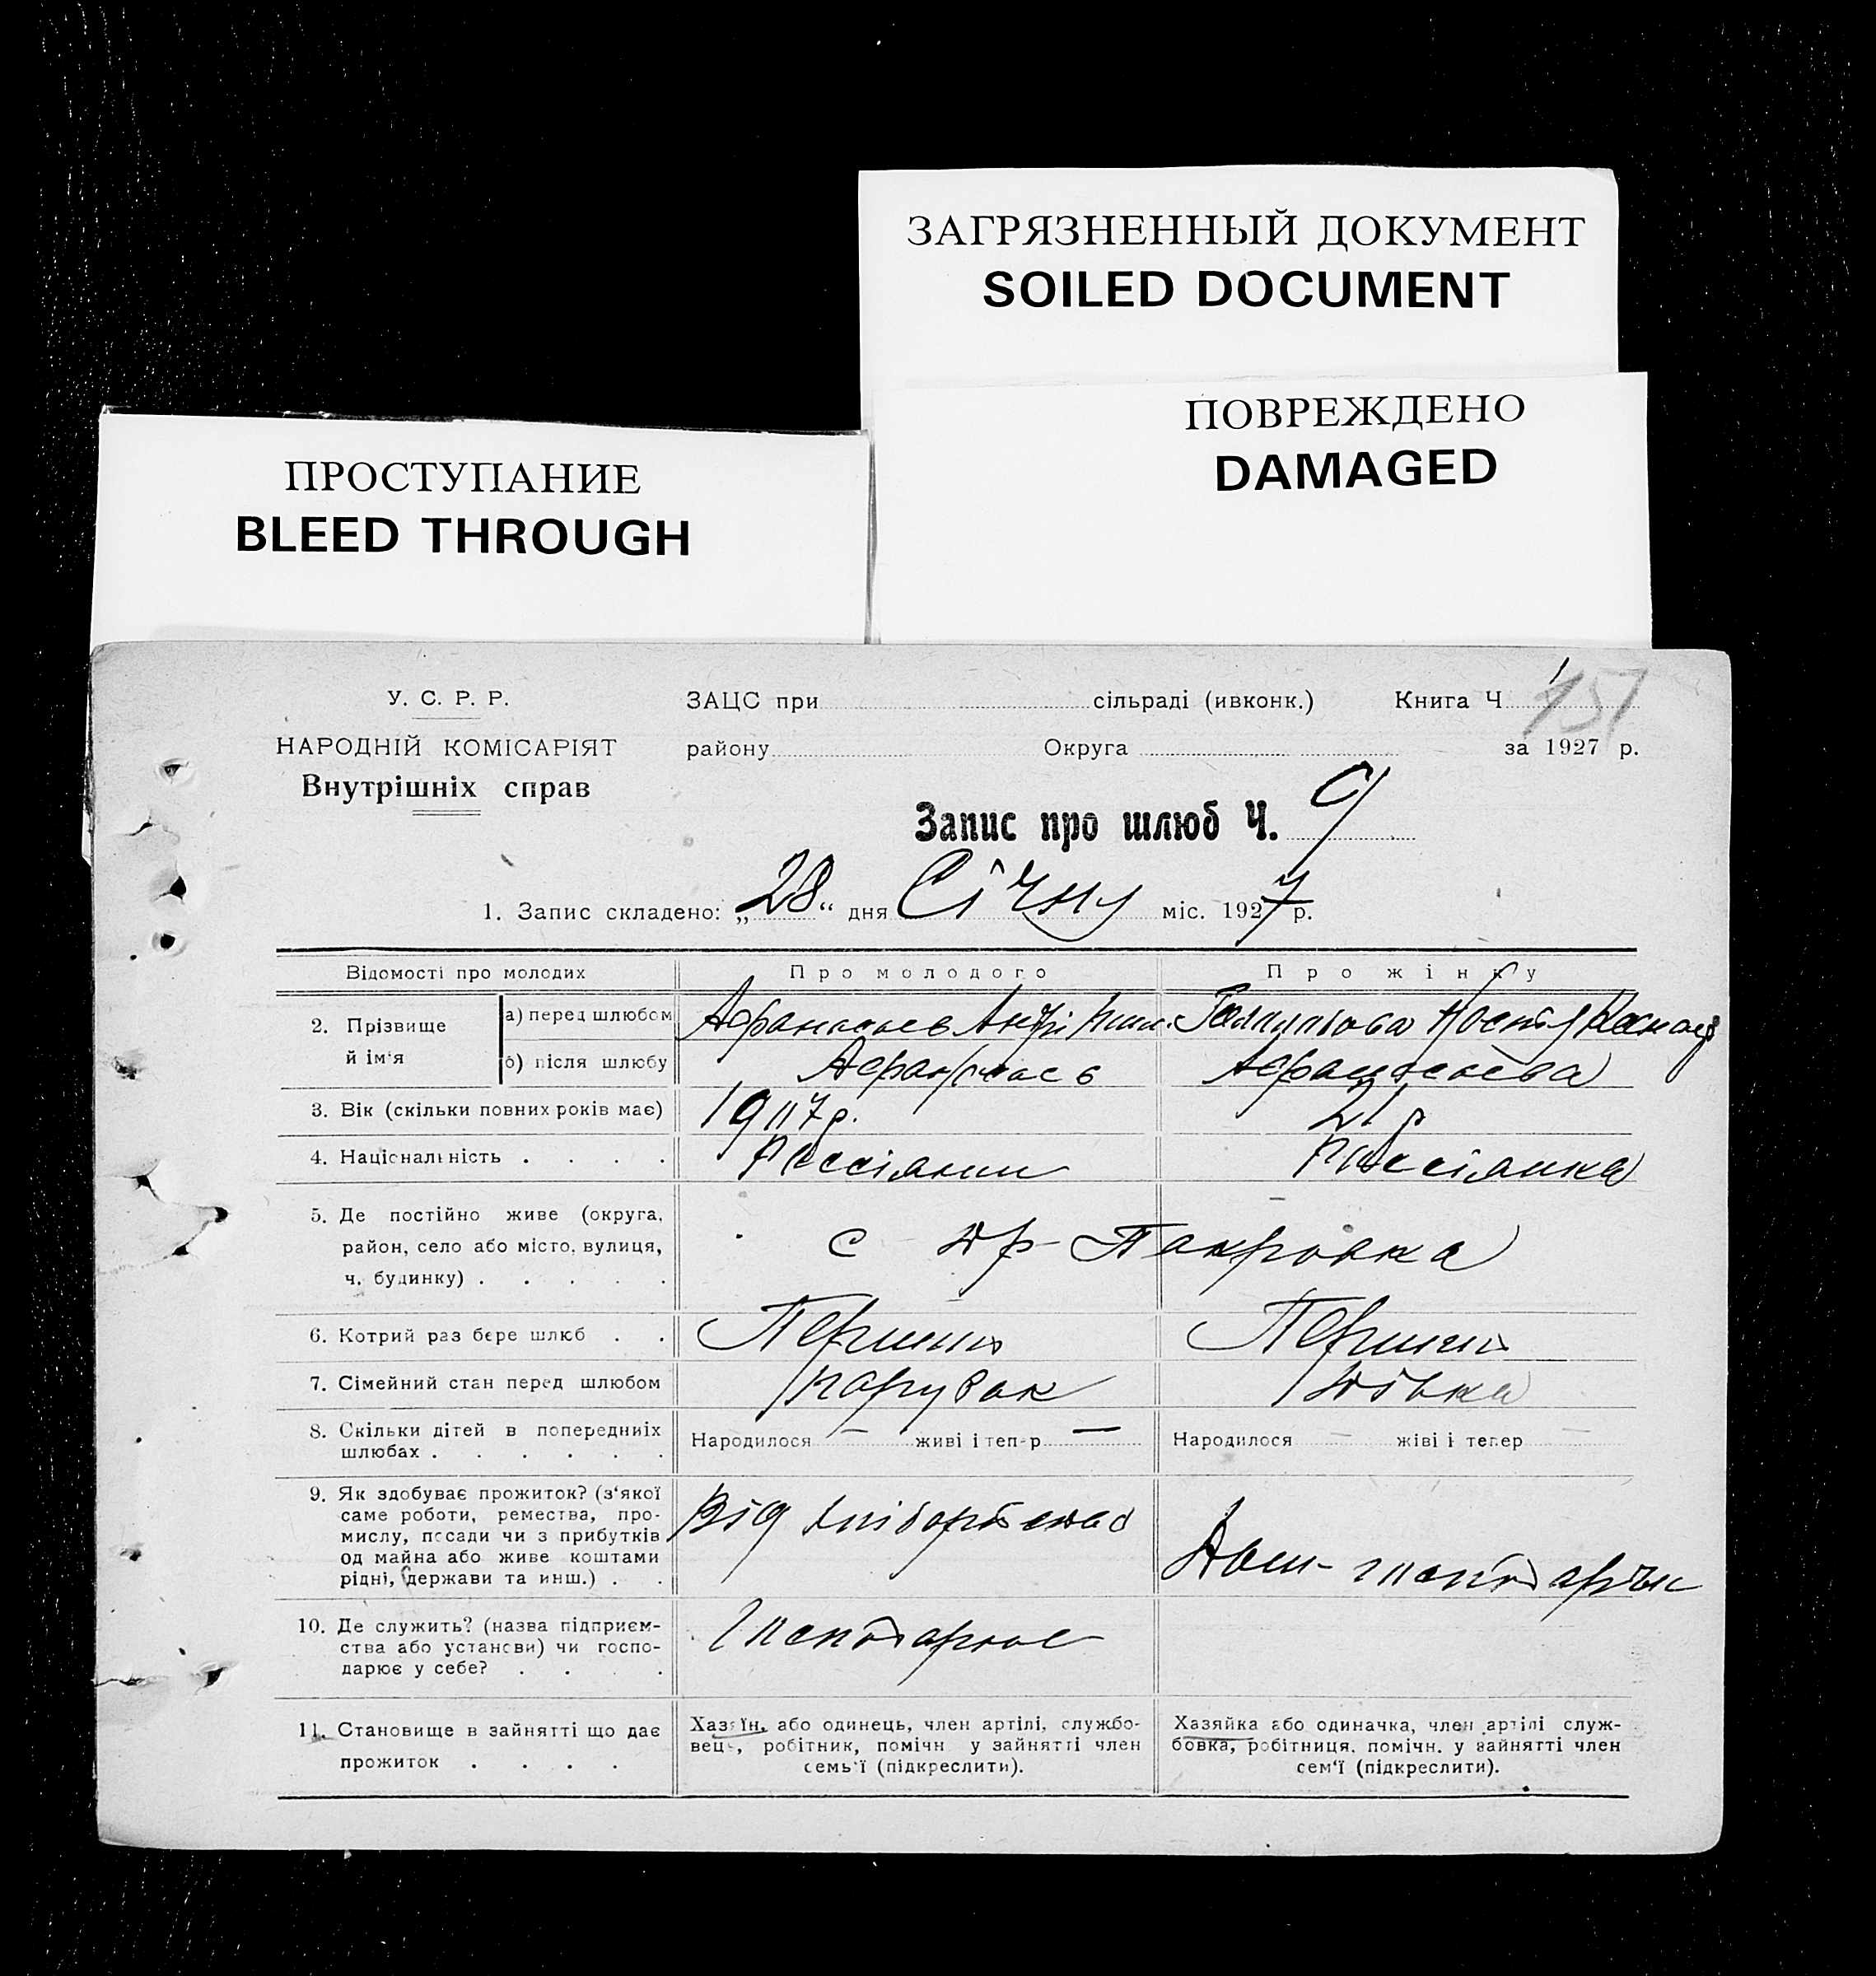 ЗАГРЯЗНЕННЫЙ ДОКУМЕНТ
SOILED DOCUMENT
ПОВРЕЖДЕНО
DAMAGED
ПРОСТУПАНИЕ
BLEED THROUGH
У. С. Р. Р.
НАРОДНІЙ КОМІСАРІЯТ
Внутрішніх справ
ЗАЦС при сільраді (ивконк.) Книга Ч
району Округа за 1927 р.
Запис про шлюб Ч. 9
1. Запис складено: „28“ дня Січня міс. 1927 р.
Відомості про молодих Про молодого Про жінку
2. Прізвище й ім'я
а) перед шлюбом Афанасьев Андрі
б) після шлюбу Афанасьев Афанасьева
3. Вік (скільки повних років має) 21 р
4. Національність . . . . Россіянин Россіянка
5. Де постійно живе (округа,
район, село або місто, вулиця,
ч. будинку) . . . . .
с Покровка
6. Котрий раз бере шлюб . . Перший Перший
7. Сімейний стан перед шлюбом парубок дівка
8. Скільки дітей в попередніх
шлюбах . . . . . .
Народилося — живі і тепер — Народилося — живі і тепер —
9. Як здобуває прожиток? (з'якої
саме роботи, ремества, про-
мислу, посади чи з прибутків
од майна або живе коштами
рідні, держави та инш.) . .
Від хліборобства
Дом-
10. Де служить? (назва підприєм-
ства або установи) чи госпо-
дарює у себе? . . . .
11. Становище в зайнятті що дає
прожиток . . . .
Хазяїн, або одинець, член артілі, службо-
вець, робітник, помічн у зайнятті член
семь'ї (підкреслити).
Хазяйка або одиначка, член артілі служ-
бовка, робітниця, помічн. у зайнятті член
сем'ї (підкреслити).